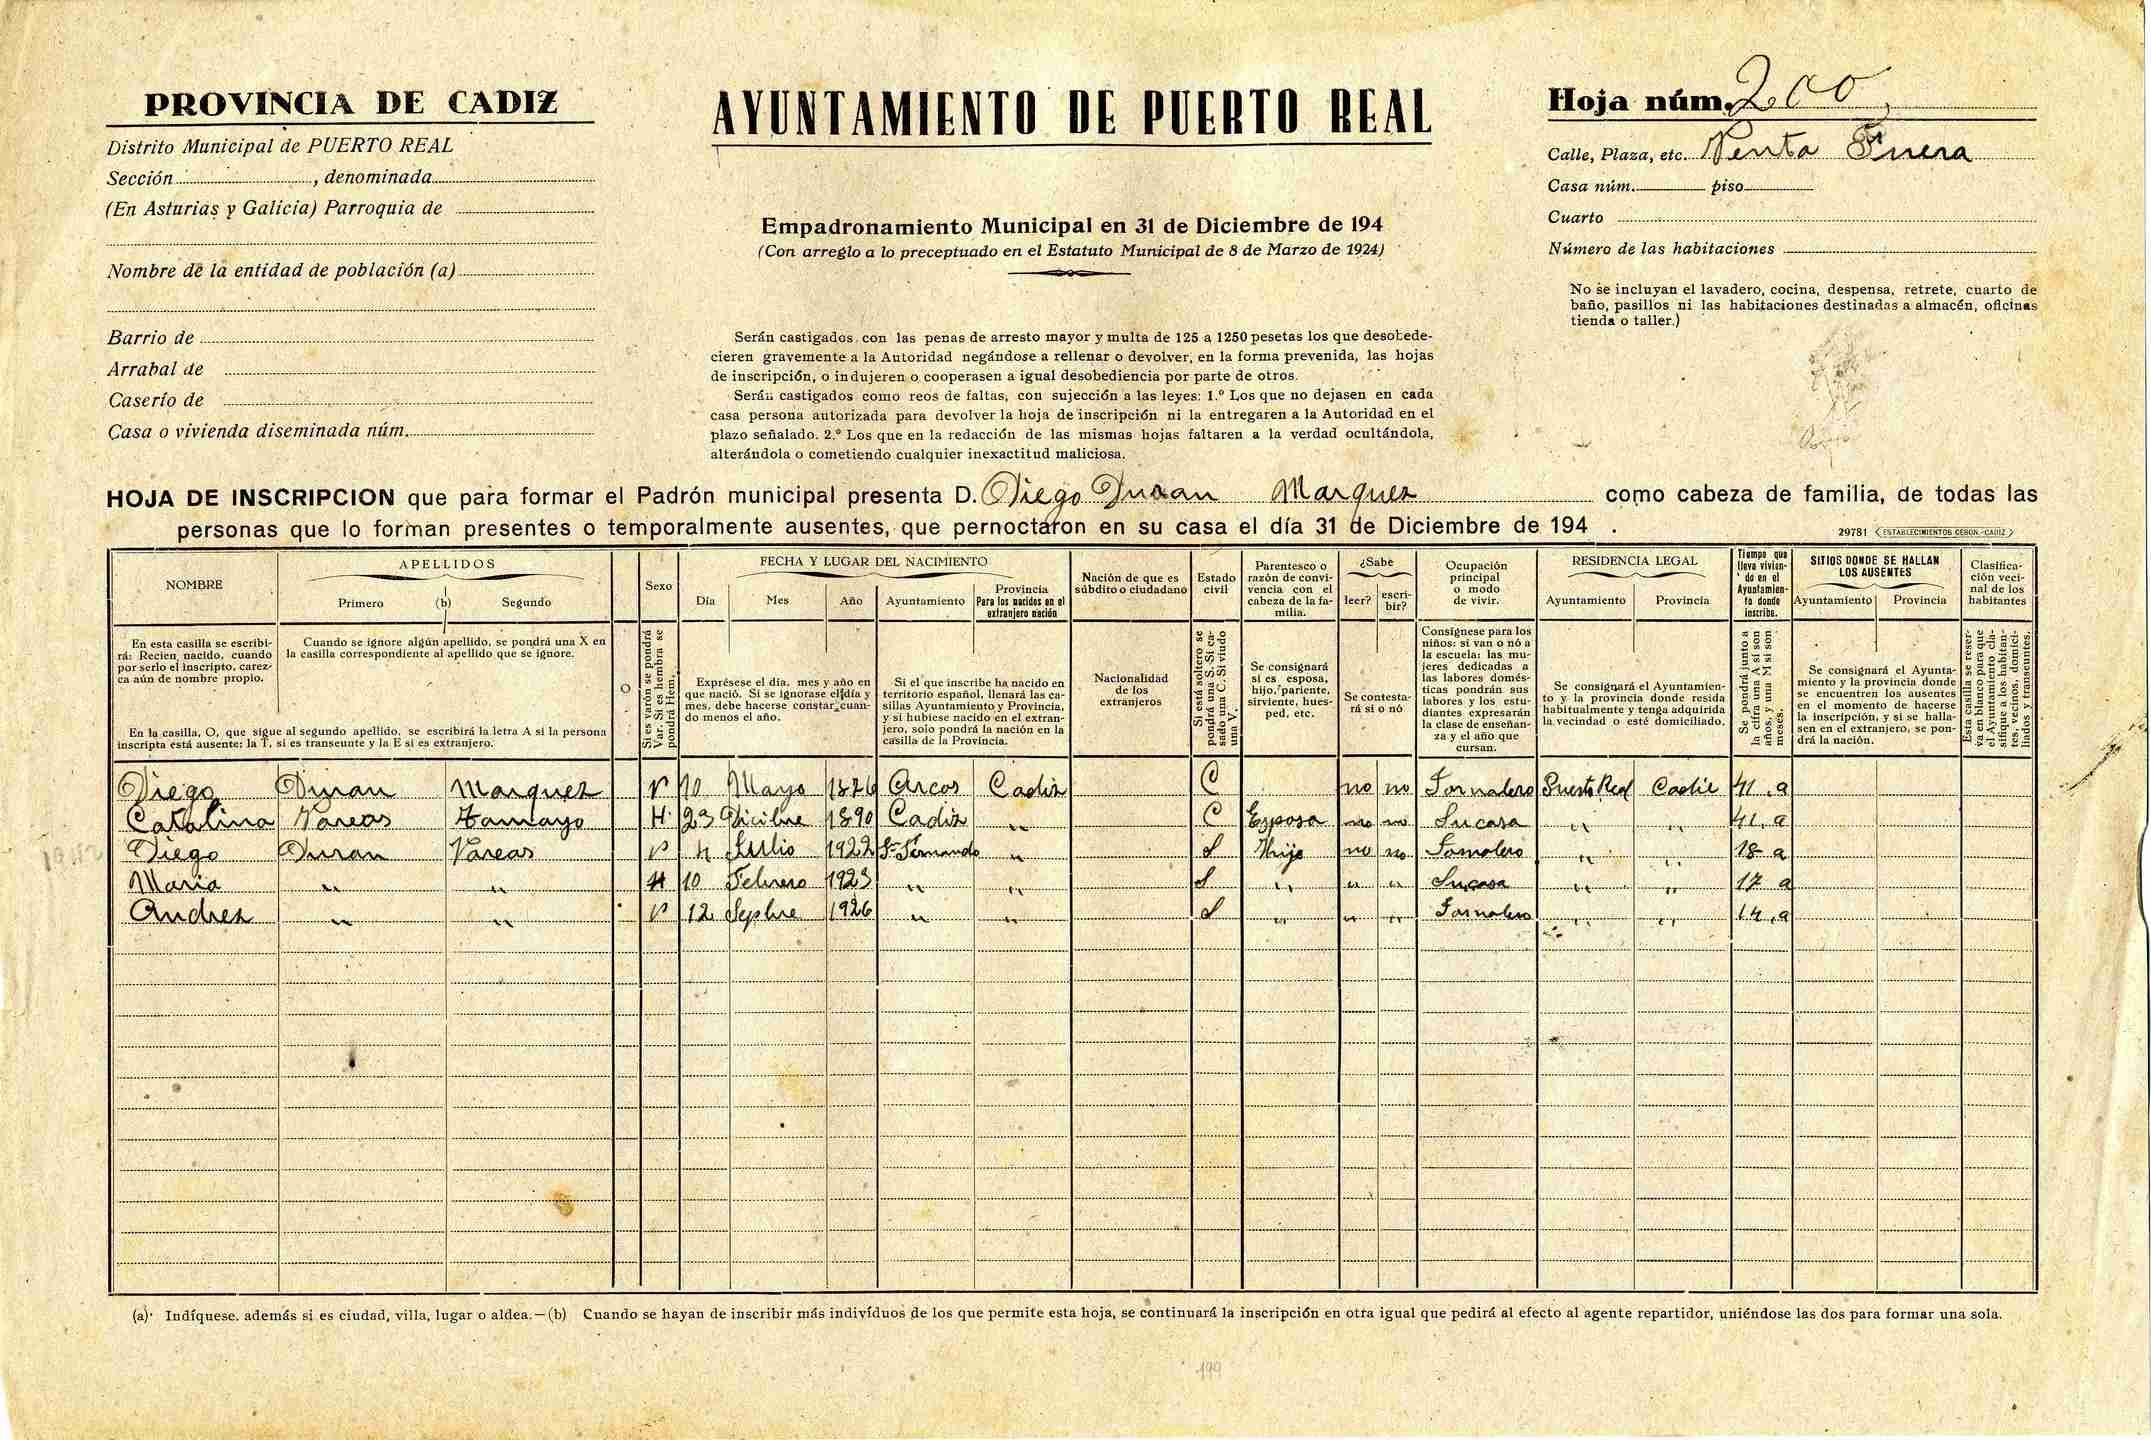 PROVINCIA DE CADIZ
Distrito Municipal de PUERTO REAL
Sección , denominada
(En Asturias y Galicia) Parroquia de
Nombre de la entidad de población (a)
Barrio de
Arrabal de
Caserío de
Casa o vivienda diseminada núm.
AYUNTAMIENTO DE PUERTO REAL
Empadronamiento Municipal en 31 de Diciembre de 194
(Con arreglo a lo preceptuado en el Estatuto Municipal de 8 de Marzo de 1924)
Serán castigados con las penas de arresto mayor y multa de 125 a 1250 pesetas los que desobede-
cieren gravemente a la Autoridad negándose a rellenar o devolver, en la forma prevenida, las hojas
de inscripción, o indujeren o cooperasen a igual desobediencia por parte de otros.
Serán castigados como reos de faltas, con sujección a las leyes: 1.º Los que no dejasen en cada
casa persona autorizada para devolver la hoja de inscripción ni la entregaren a la Autoridad en el
plazo señalado. 2.º Los que en la redacción de las mismas hojas faltaren a la verdad ocultándola,
alterándola o cometiendo cualquier inexactitud maliciosa.
Hoja núm. 200
Calle, Plaza, etc. Venta Fuera
Casa núm. piso
Cuarto
Número de las habitaciones
No se incluyan el lavadero, cocina, despensa, retrete, cuarto de
baño, pasillos ni las habitaciones destinadas a almacén, oficinas
tienda o taller.)
HOJA DE INSCRIPCION que para formar el Padrón municipal presenta D. Diego Duran Marquez como cabeza de familia, de todas las
personas que lo forman presentes o temporalmente ausentes, que pernoctaron en su casa el día 31 de Diciembre de 194 .
29781 (ESTABLECIMIENTOS CERON.-CADIZ)
NOMBRE
APELLIDOS
Primero (b) Segundo
Sexo
FECHA Y LUGAR DEL NACIMIENTO
Día Mes Año Ayuntamiento
Provincia
Para los nacidos en el
extranjero nación
Nación de que es
súbdito o ciudadano
Estado
civil
Parentesco o
razón de convi-
vencia con el
cabeza de la fa-
milia.
¿Sabe
leer?
escri-
bir?
Ocupación
principal
o modo
de vivir.
RESIDENCIA LEGAL
Ayuntamiento Provincia
Tiempo que
lleva vivien-
do en el
Ayuntamien-
to donde
inscribe.
SITIOS DONDE SE HALLAN
LOS AUSENTES
Ayuntamiento Provincia
Clasifica-
ción veci-
nal de los
habitantes
En esta casilla se escribi-
rá: Recien nacido, cuando
por serlo el inscripto, carez-
ca aún de nombre propio.
Cuando se ignore algún apellido, se pondrá una X en
la casilla correspondiente al apellido que se ignore.
En la casilla, O, que sigue al segundo apellido, se escribirá la letra A si la persona
inscripta está ausente; la T, si es transeunte y la E si es extranjero.
O
Si es varón se pondrá
Var. Si es hembra se
pondrá Hem.
Exprésese el dia, mes y año en
que nació. Si se ignorase el día y
mes, debe hacerse constar cuan-
do menos el año.
Si el que inscribe ha nacido en
territorio español, llenará las ca-
sillas Ayuntamiento y Provincia,
y si hubiese nacido en el extran-
jero, solo pondrá la nación en la
casilla de la Provincia.
Nacionalidad
de los
extranjeros
Si está soltero se
pondrá una S. Si ca-
sado una C. Si viudo
una V.
Se consignará
si es esposa,
hijo, pariente,
sirviente, hues-
ped, etc.
Se contesta-
rá si o nó
Consígnese para los
niños: si van o nó a
la escuela: las mu-
jeres dedicadas a
las labores domés-
ticas pondrán sus
labores y los estu-
diantes expresarán
la clase de enseñan-
za y el año que
cursan.
Se consignará el Ayuntamien-
to y la provincia donde resida
habitualmente y tenga adquirida
la vecindad o esté domiciliado.
Se pondrá junto a
la cifra una A si son
años, y una M si son
meses.
Se consignará el Ayunta-
miento y la provincia donde
se encuentren los ausentes
en el momento de hacerse
la inscripción, y si se halla-
sen en el extranjero, se pon-
drá la nación.
Esta casilla se reser-
va en blanco para que
el Ayuntamiento cla-
sifique a los habitan-
tes, vecinos, domici-
liados y transeuntes.
Diego Duran Marquez V 10 Mayo 1876 Arcos Cadiz C no no Jornalero Puerto Real Cadiz 41 a
Catalina Vareas Tamayo H 23 Dicibre 1890 Cadiz " C Esposa no no Sucasa " " 41 a
Diego Duran Vareas V 4 Julio 1922 Sn Fernando " S Hijo no no Jornalero " " 18 a
Maria " " H 10 Febrero 1923 " " S " " " Sucasa " " 17 a
Andrez " " V 12 Sepbre 1926 " " S " " " Jornalero " " 14 a
(a) Indíquese, además si es ciudad, villa, lugar o aldea.—(b) Cuando se hayan de inscribir más indivíduos de los que permite esta hoja, se continuará la inscripción en otra igual que pedirá al efecto al agente repartidor, uniéndose las dos para formar una sola.
199